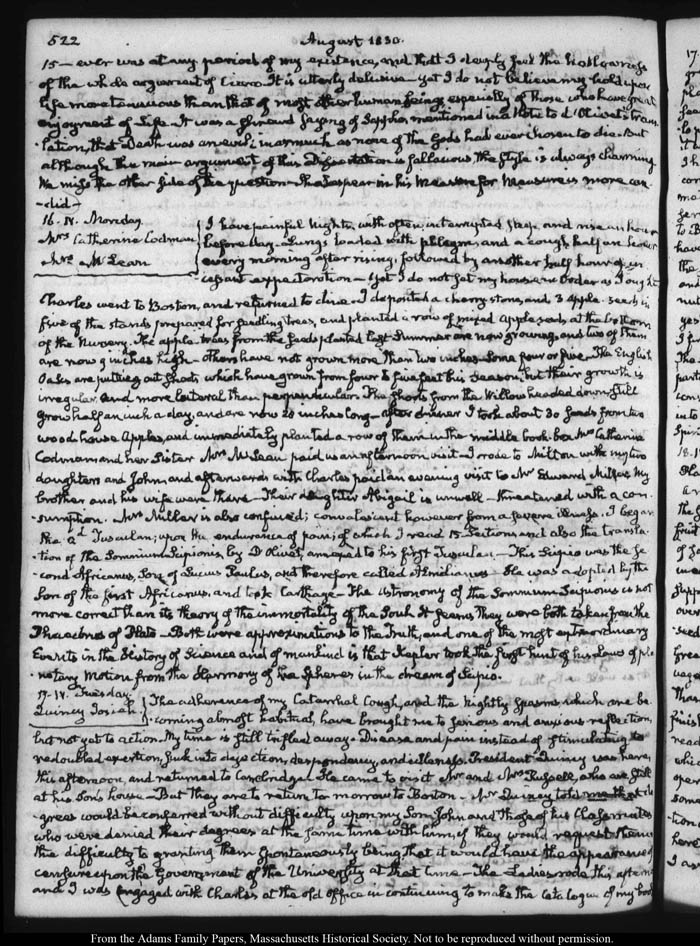 522 August 1830.
15 — ever was at any period of my existence, and that I deeply feel the hollowness
of the whole argument of Cicero. It is utterly delusive — yet I do not believe my hold upon
life more tenacious than that of most other human beings, especially of those who have great
enjoyment of Life — It was a shrewd saying of Sappho, mentioned in a Note to d'Olivet's trans-
-lation, that Death was an evil; inasmuch as none of the Gods had ever chosen to die. But
although the main argument of this Dissertation is fallacious the Style is always charming
We miss the other side of the question — Shakspear in his Measure for Measure is more can-
-did —
16. IV. Monday.
Mrs Catherine Codman
Mrs McLean
I have painful nights, with often interrupted sleep, and rise an hour
before day — Lungs loaded with phlegm, and a cough half an hour
every morning after rising, followed by another half hour of in-
cessant expectoration — Yet I do not set my house in order as I ought
Charles went to Boston, and returned to dine — I deposited a cherry stone, and 3 apple-seeds in
five of the stands prepared for seedling trees, and planted a row of mixed apple seeds at the bottom
of the Nursery. The apple trees from the seeds planted last Summer are now growing, and two of them
are now 9 inches high — others have not grown more than two inches — Some four or five. The English
Oaks are putting out shoots which have grown from four to five feet this Season, but their growth is
irregular, and more lateral than perpendicular. The shoots from the Willow headed down still
grow half an inch a day, and are now 20 inches long — after dinner I took about 30 seeds from two
woodhouse Apples, and immediately planted a row of them in the middle book-box Mrs Catherine
Codman and her Sister Mrs McLean paid us an afternoon visit — I rode to Milton with my two
daughters and John and afterwards with Charles paid an evening visit to Mr Edward Miller. My
brother and his wife were there — Their daughter Abigail is unwell — threatened with a con-
-sumption. Mrs Miller is also confined; convalescent however from a severe illness. I began
the 2d Tusculan, upon the endurance of pain; of which I read 15 Sections and also the transla-
-tion of the Somnium Scipionis, by D'Olivet, annexed to his first Tusculan — This Scipio was the Se-
-cond Africanus, Son of Lucius Paulus, and therefore called Æmilianus — He was adopted by the
Son of the first Africanus, and took Carthage — The astronomy of the Somnium Scipionis is not
more correct than its theory of the immortality of the Soul. It seems they were both taken from the
Phaedrus of Plato — Both were approximations to the Truth, and one of the most extraordinary
Events in the History of Science and of mankind is that Kepler took the first hint of his Laws of pla-
-netary Motion from the Harmony of the Spheres in the dream of Scipio.
17. IV. Tuesday.
Quincy Josiah
The adherence of my Catarrhal Cough, and the nightly spasms which are be-
-coming almost habitual, have brought me to serious and anxious reflection,
but not yet to action. My time is still trifled away. Disease and pain instead of stimulating to
redoubled exertion, sink into dejection, despondency, and idleness. President Quincy was here,
this afternoon, and returned to Cambridge. He came to visit Mr and Mrs Russell, who are still
at his Son's house — But they are to return to morrow to Boston. Mr Quincy told me that de-
grees would be conferred without difficulty upon my Son John and those of his Classmates
who were denied their degrees at the same time with him, if they would request them
the difficulty to granting them spontaneously being that it would have the appearance of
censure upon the Government of the University at that time — The Ladies rode this afternoon
and I was engaged with Charles at the old office in continuing to make the Catalogue of my books
From the Adams Family Papers, Massachusetts Historical Society. Not to be reproduced without permission.